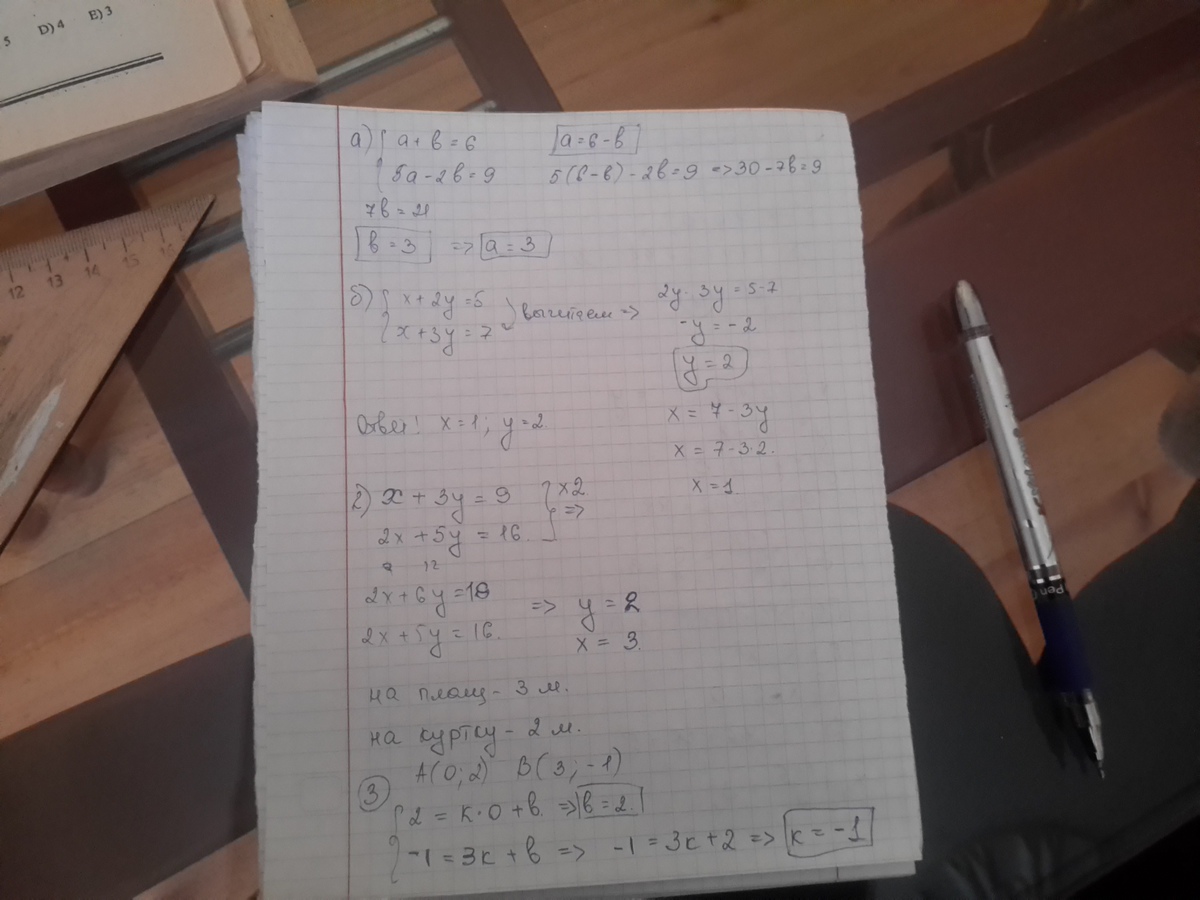 5 D) 4 E) 3
12 13 14 15 16
а) { a + b = 6 a = 6 - b
5a - 2b = 9 5(6 - b) - 2b = 9 => 30 - 7b = 9
7b = 21
b = 3 => a = 3
б) { x + 2y = 5 } вычитаем => 2y - 3y = 5 - 7
x + 3y = 7
-y = -2
y = 2
Ответ! x = 1; y = 2. x = 7 - 3y
x = 7 - 3·2.
x = 1.
2) x + 3y = 9 } x2
2x + 5y = 16. =>
12
2x + 6y = 18 => y = 2
2x + 5y = 16. x = 3.
на плащ - 3 м.
на куртку - 2 м.
A(0; 2) B(3; -1)
3
{ 2 = к·0 + b. => b = 2.
-1 = 3к + b => -1 = 3к + 2 => к = -1
Pen